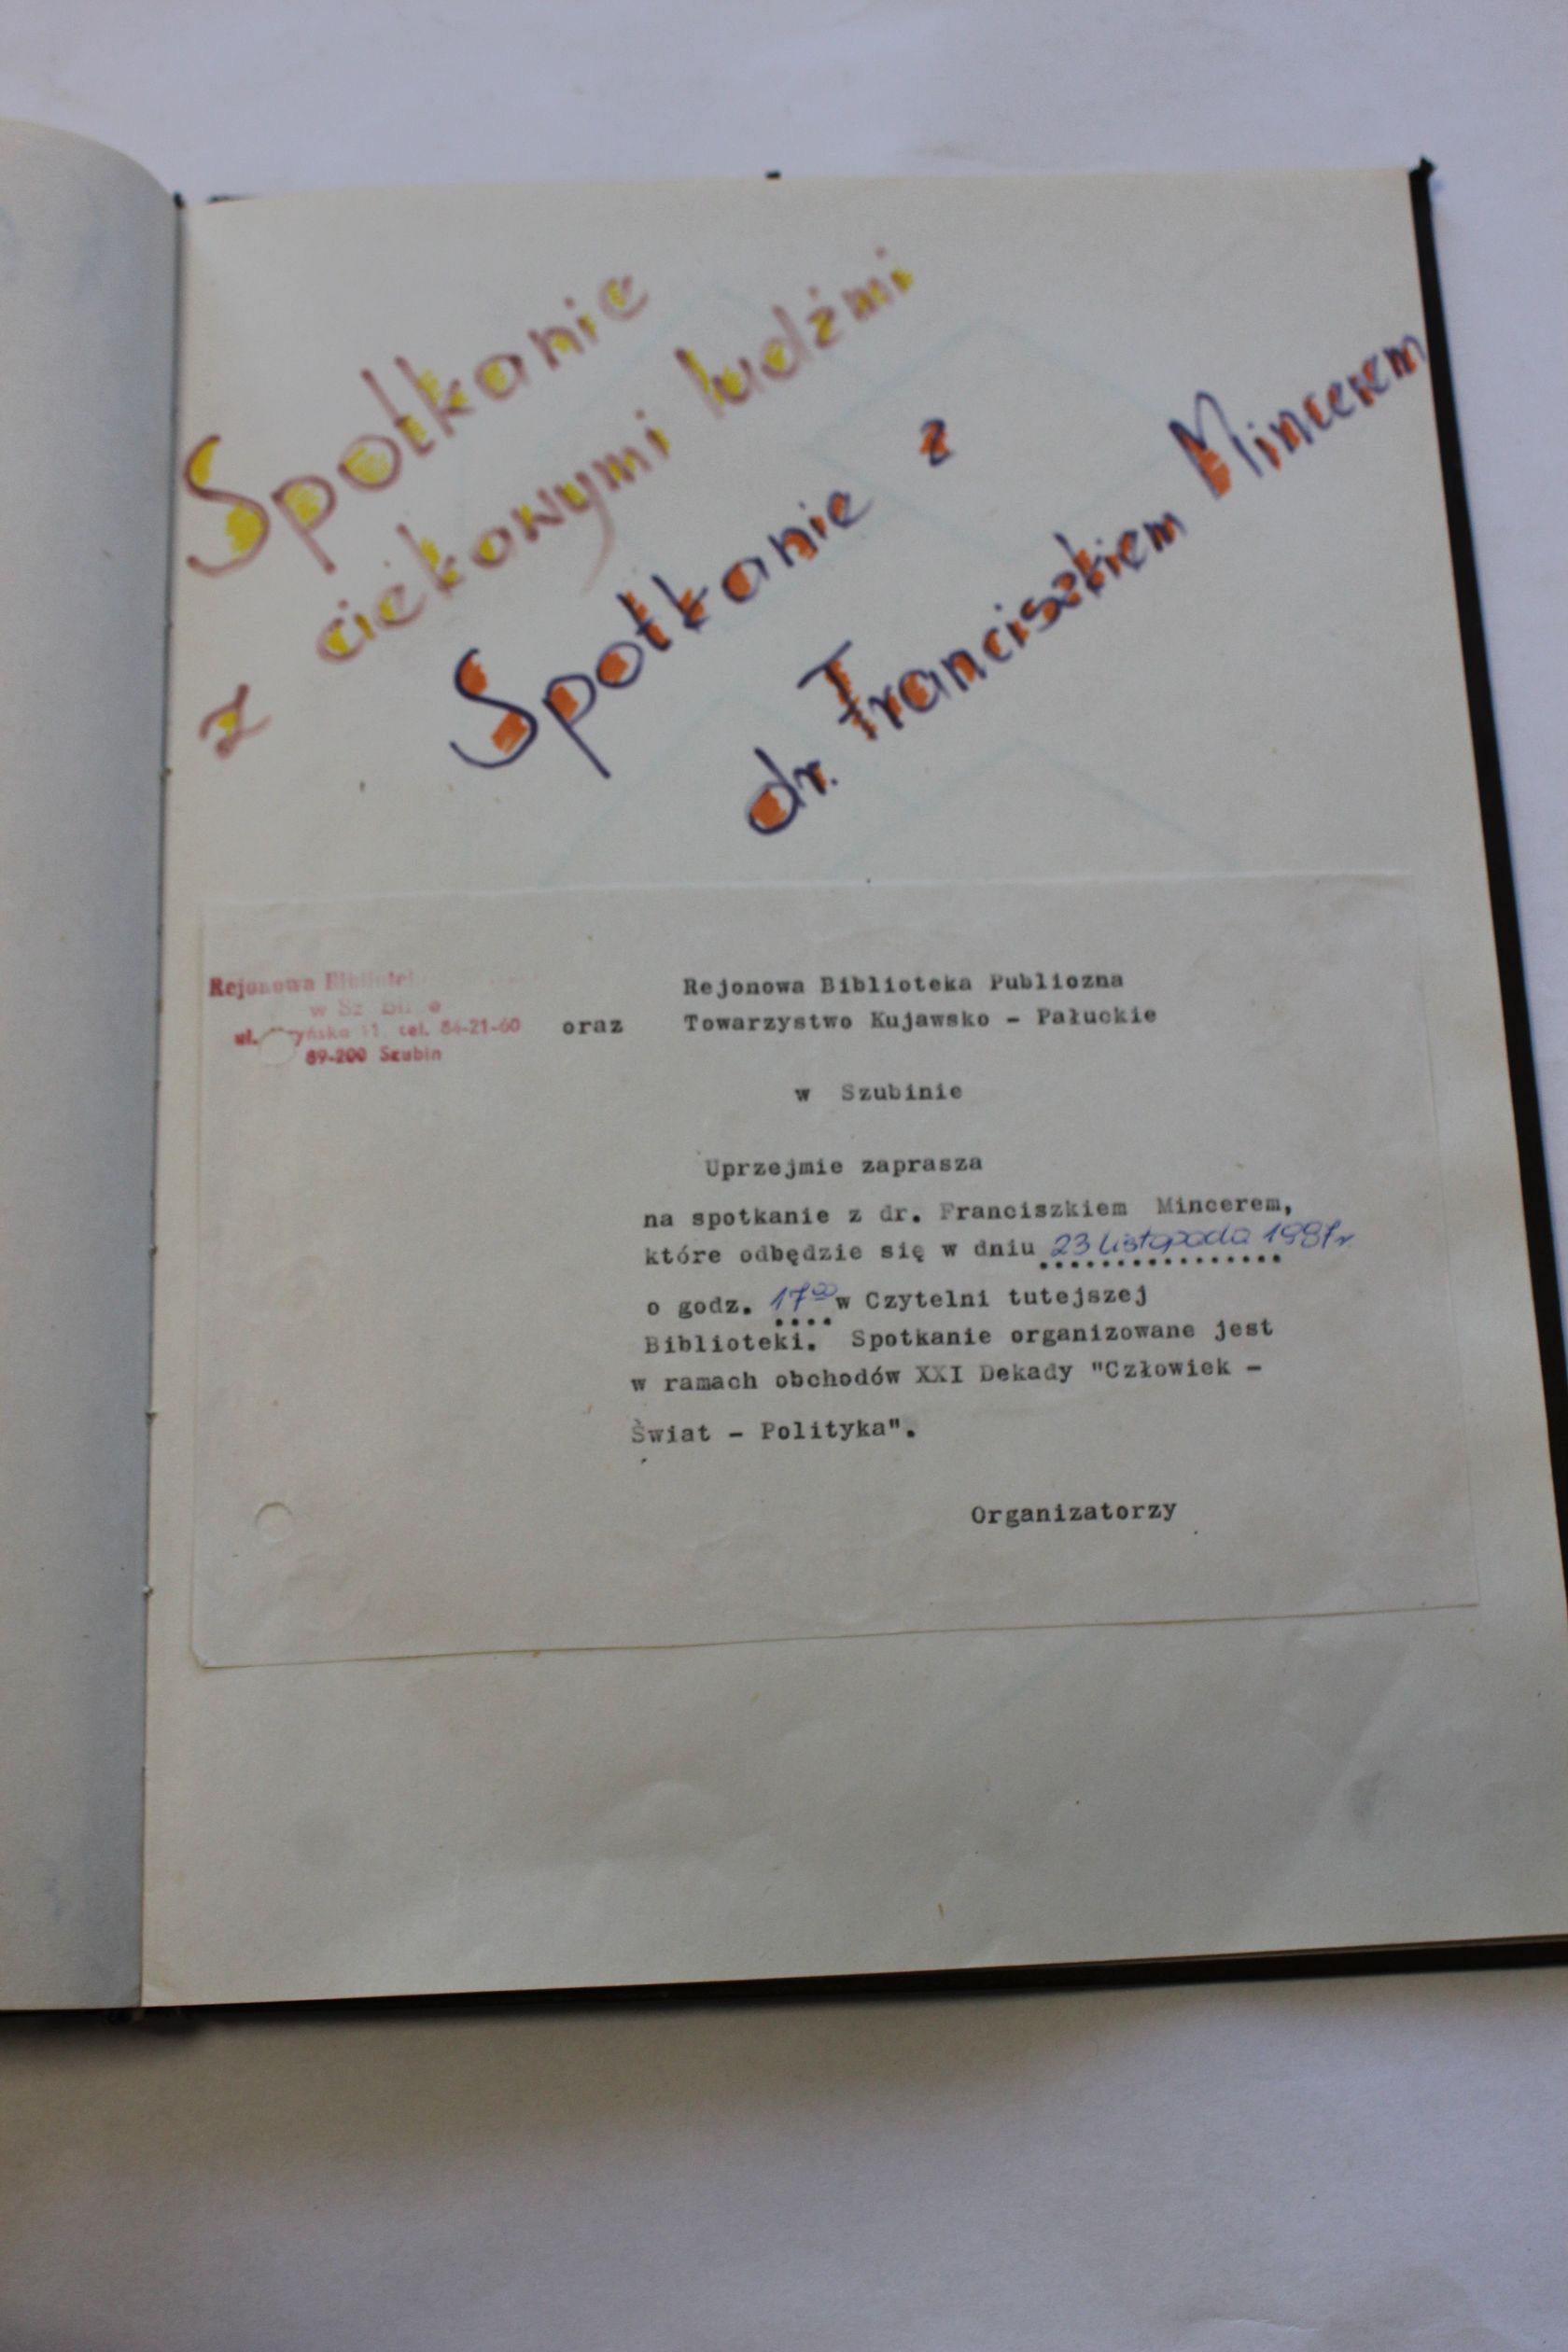 Spotkanie
z ciekawymi ludźmi
Spotkanie z
dr. Franciszkiem Mincerem
Rejonowa
w
tel. 84-21-60
89-200 Szubin
Rejonowa Biblioteka Publiczna
oraz Towarzystwo Kujawsko - Pałuckie
w Szubinie
Uprzejmie zaprasza
na spotkanie z dr. Franciszkiem Mincerem,
które odbędzie się w dniu 23 listopada 1987r
o godz. 17⁰⁰ w Czytelni tutejszej
Biblioteki. Spotkanie organizowane jest
w ramach obchodów XXI Dekady "Człowiek -
Świat - Polityka".
Organizatorzy